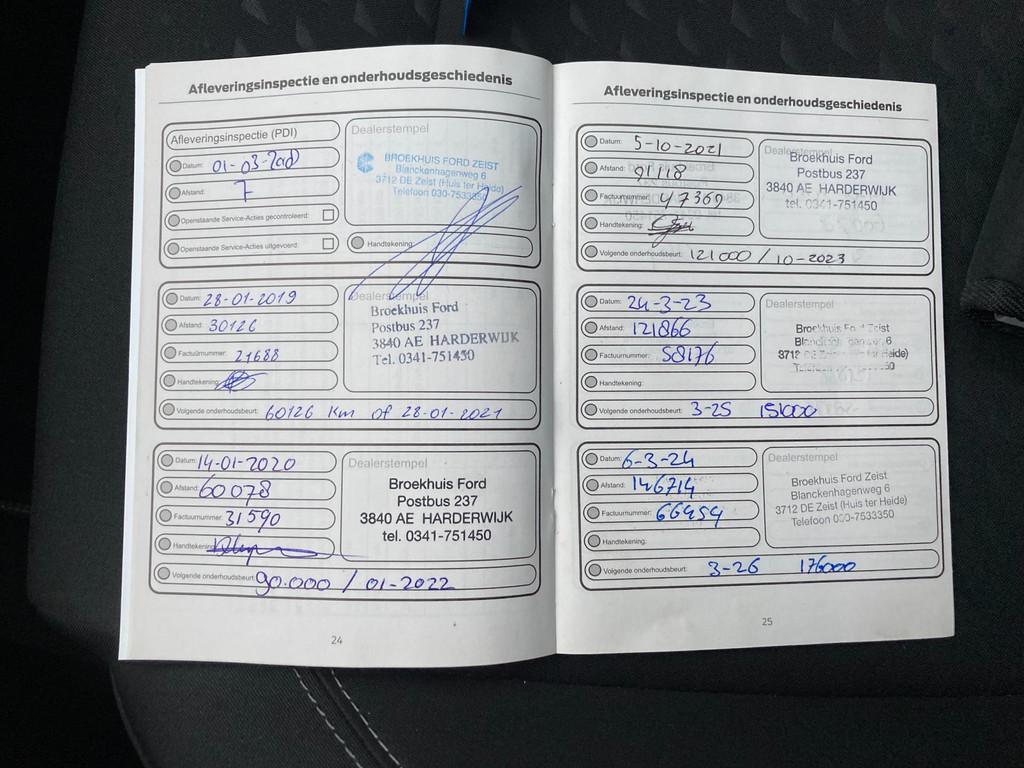 Afleveringsinspectie en onderhoudsgeschiedenis
Afleveringsinspectie (PDI)
Datum: 01-03-2018
Afstand: 7
Openstaande Service-Acties gecontroleerd:
Openstaande Service-Acties uitgevoerd:
Dealerstempel
BROEKHUIS FORD ZEIST
Blanckenhagenweg 6
3712 DE Zeist (Huis ter Heide)
Telefoon 030-7533350
Handtekening:
Datum: 28-01-2019
Afstand: 30126
Factuurnummer: 21688
Handtekening:
Dealerstempel
Broekhuis Ford
Postbus 237
3840 AE HARDERWIJK
Tel. 0341-751450
Volgende onderhoudsbeurt: 60126 Km of 28-01-2021
Datum: 14-01-2020
Afstand: 60078
Factuurnummer: 31590
Handtekening:
Dealerstempel
Broekhuis Ford
Postbus 237
3840 AE HARDERWIJK
tel. 0341-751450
Volgende onderhoudsbeurt: 90.000 / 01-2022
24
Afleveringsinspectie en onderhoudsgeschiedenis
Datum: 5-10-2021
Afstand: 91118
Factuurnummer: 47369
Handtekening:
Dealerstempel
Broekhuis Ford
Postbus 237
3840 AE HARDERWIJK
tel. 0341-751450
Volgende onderhoudsbeurt: 121000 / 10-2023
Datum: 24-3-23
Afstand: 121866
Factuurnummer: 58176
Handtekening:
Dealerstempel
Broekhuis Ford Zeist
6
3712 Heide)
50
Volgende onderhoudsbeurt: 3-25 151000
Datum: 6-3-24
Afstand: 146714
Factuurnummer: 66454
Handtekening:
Dealerstempel
Broekhuis Ford Zeist
Blanckenhagenweg 6
3712 DE Zeist (Huis ter Heide)
Telefoon 030-7533350
Volgende onderhoudsbeurt: 3-26 176000
25